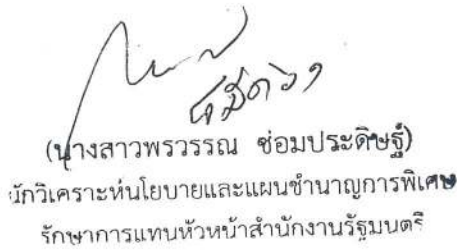 (นางสาวพรวรรณ ช่อมประดิษฐ์)
นักวิเคราะห์นโยบายและแผนชำนาญการพิเศษ
รักษาการแทนหัวหน้าสำนักงานรัฐมนตรี